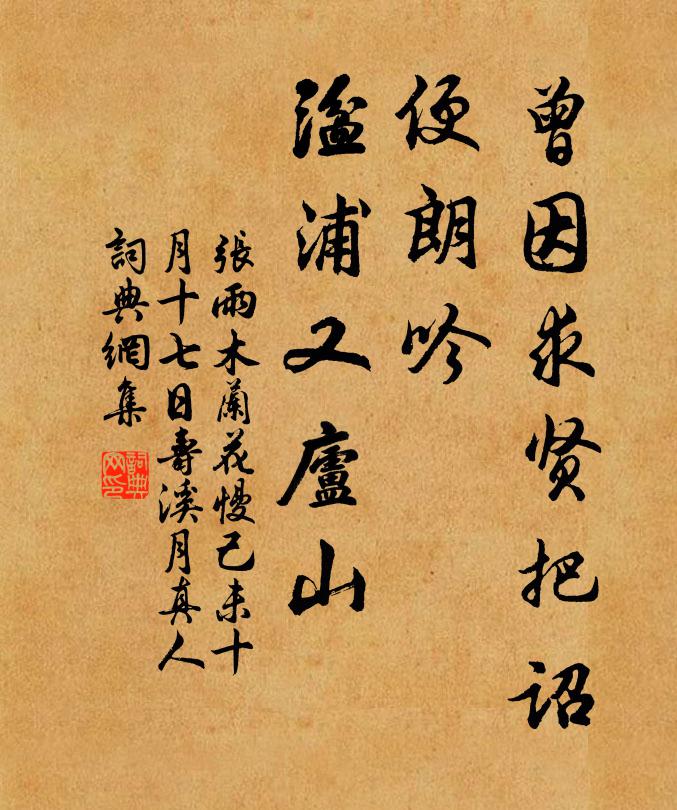 曾因求贤把詔
便朗吟
湓浦又廬山
張雨木蘭花慢己未十
月十七日壽溪月真人
詞典網集
詞典网印